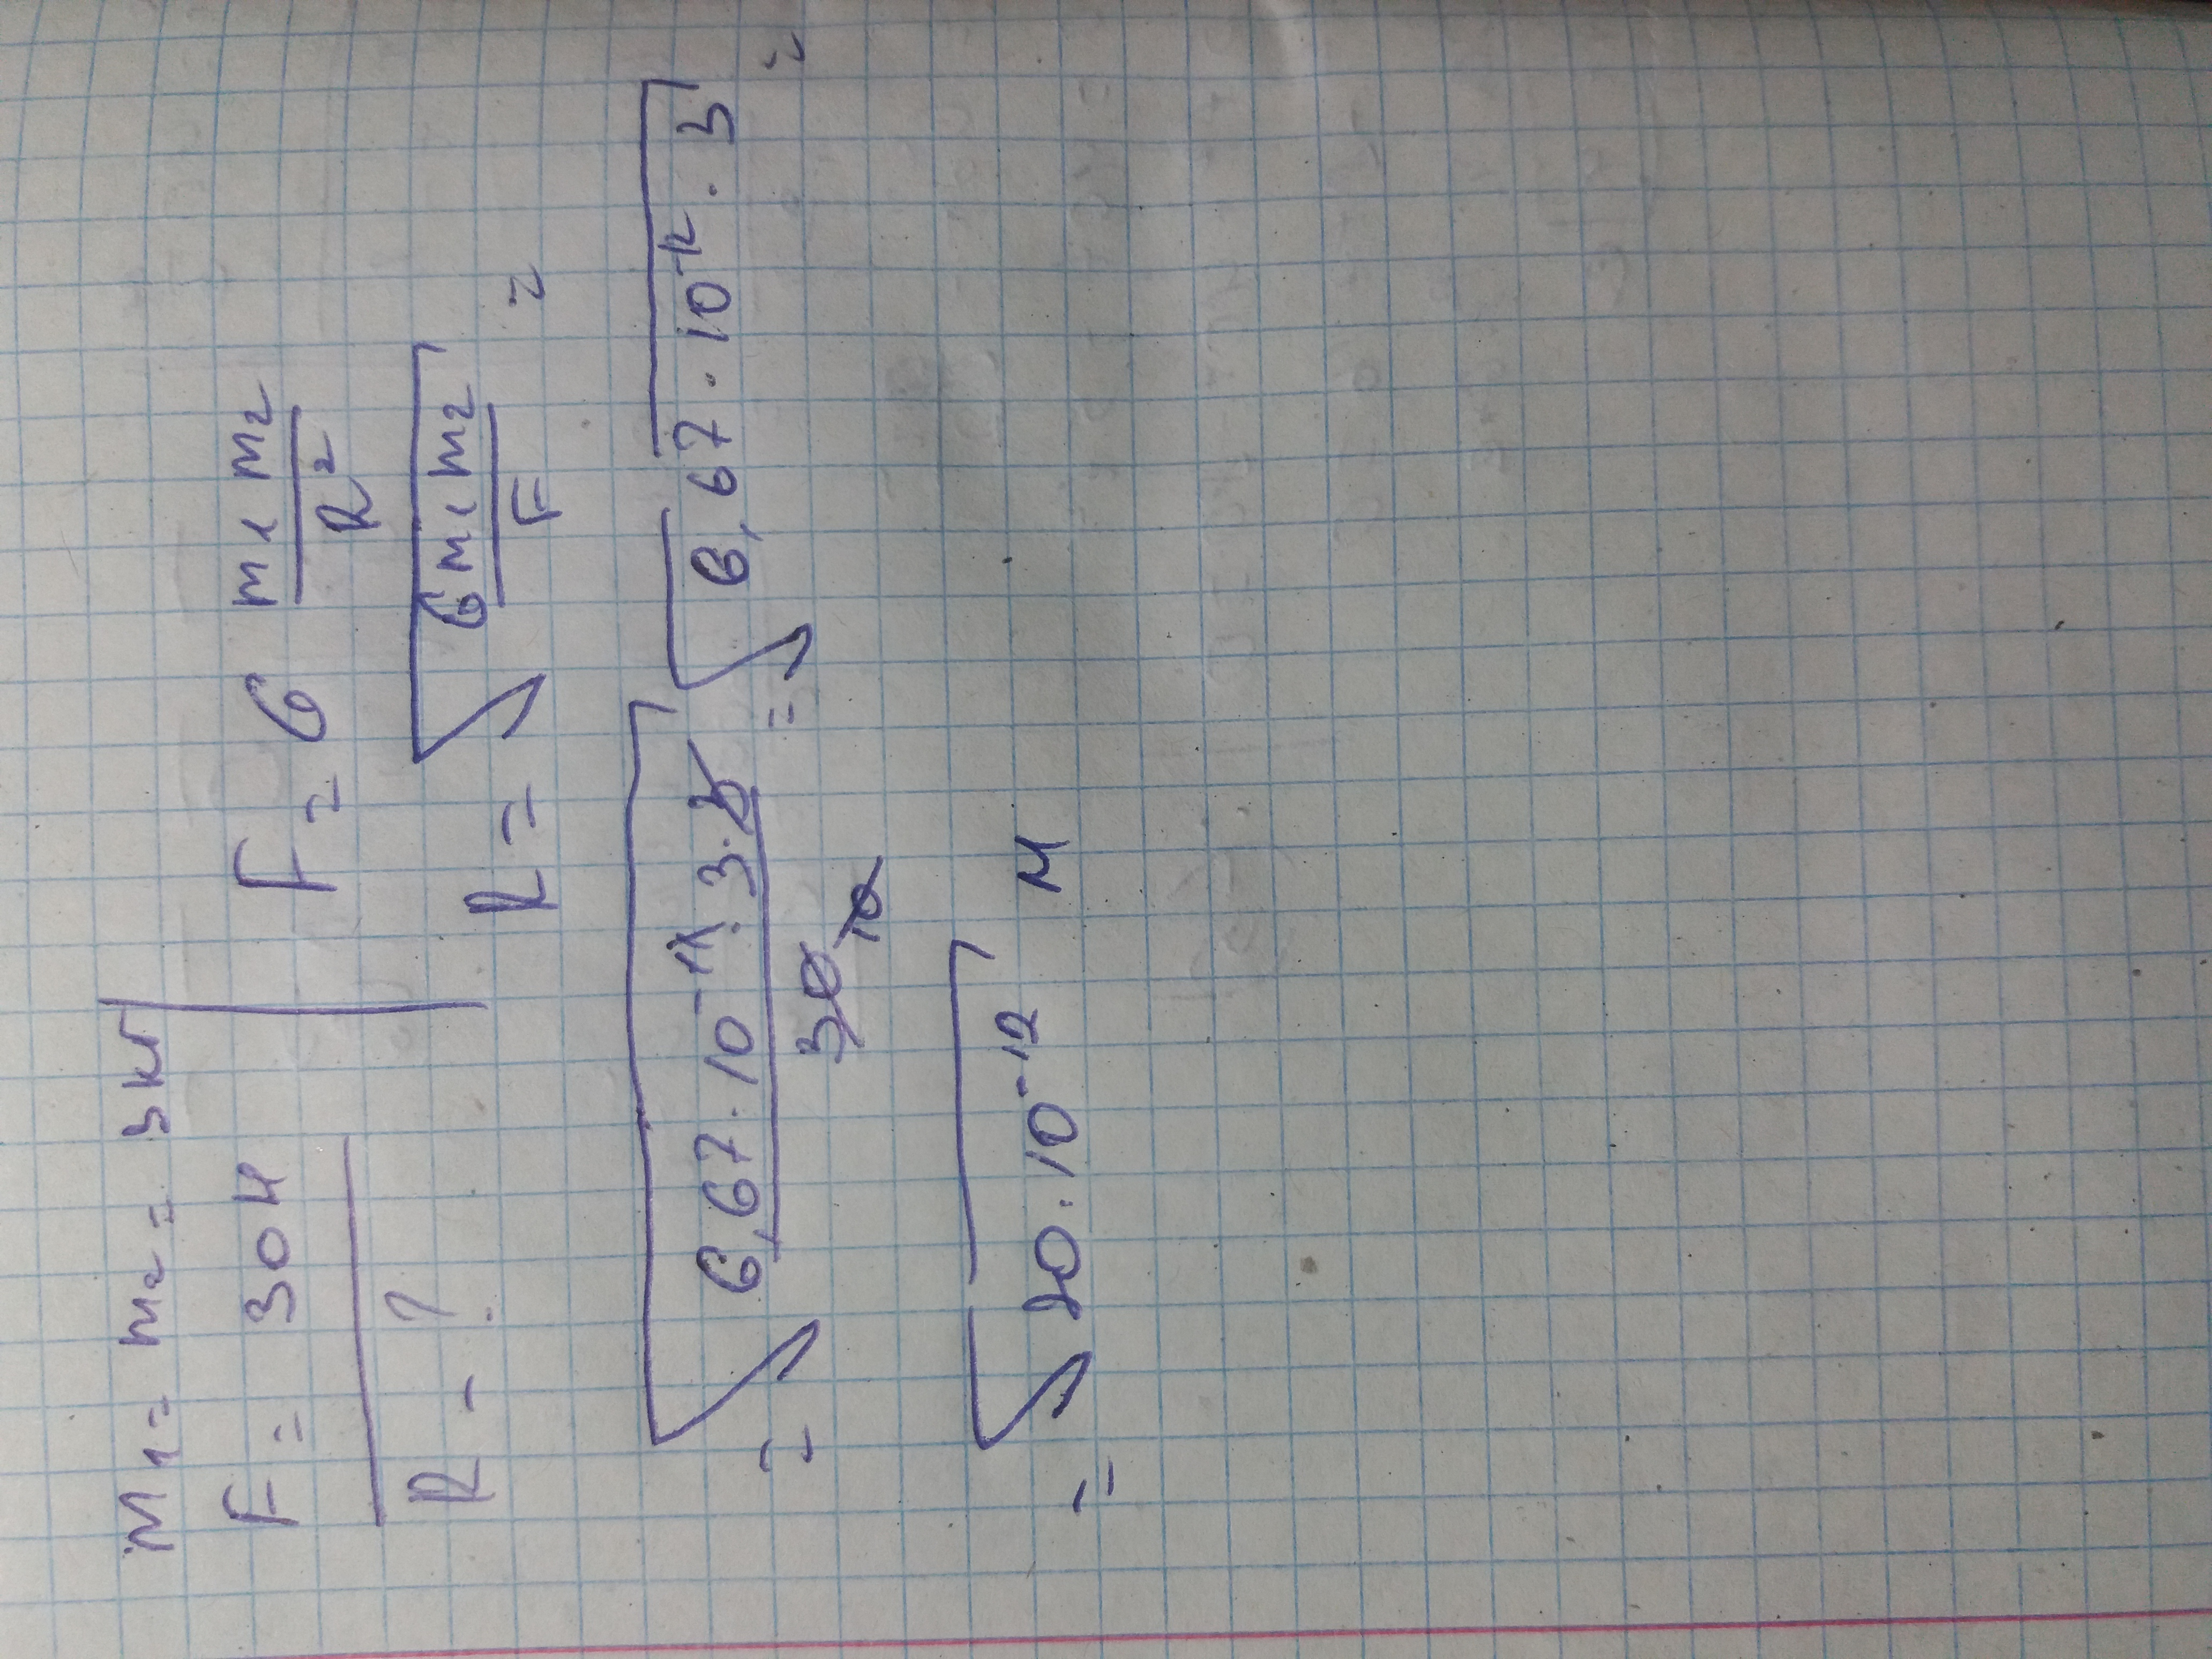 m₁ = m₂ = 3кг
F = 30Н
R - ?
F = G m₁m₂ / R²
R = √(G m₁m₂ / F) =
= √(6,67 · 10⁻¹¹ · 3 · 3 / 30 10) = √(6,67 · 10⁻¹² · 3) =
= √(20 · 10⁻¹²) м